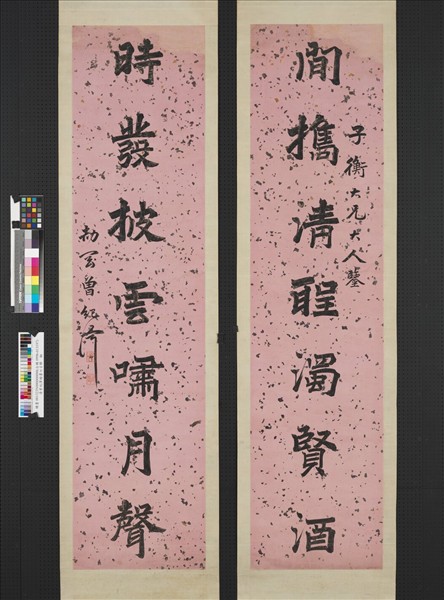 子衡大兄大人鑒
間攜清聖濁賢酒
時發披雲嘯月聲
劼剛曾紀澤